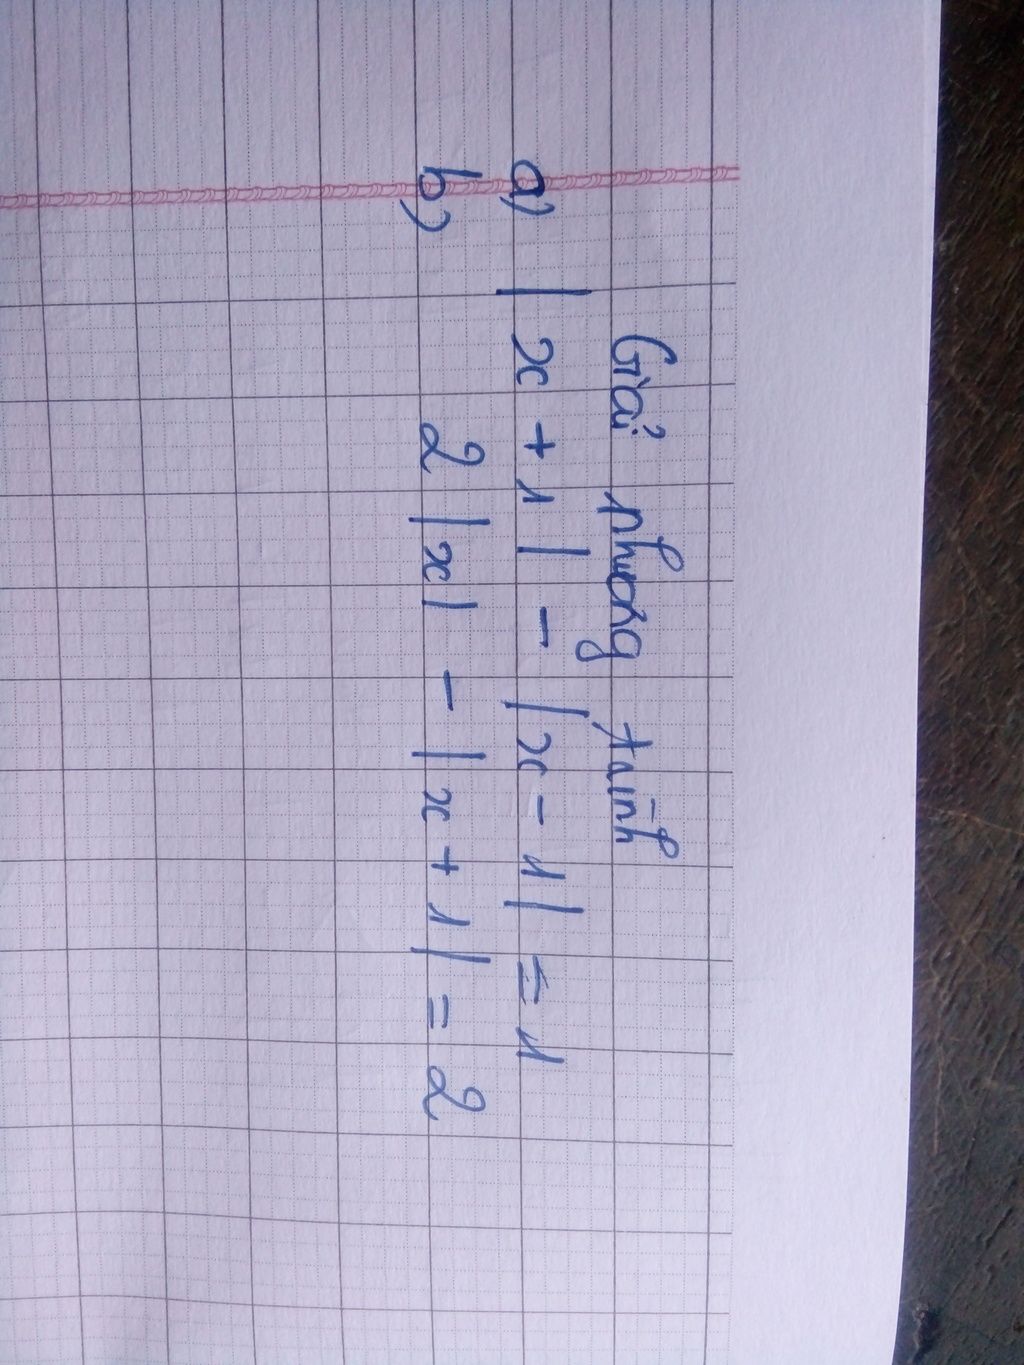 Giải phương trình
a) |x + 1| - |x - 1| = 1
b) 2|x| - |x + 1| = 2